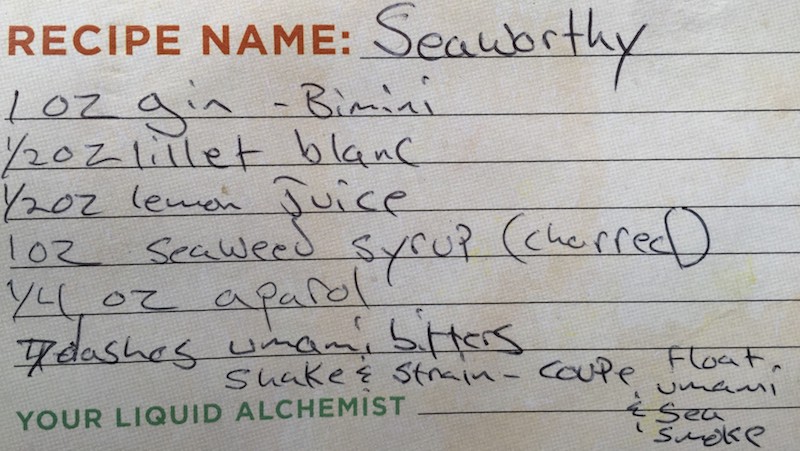 RECIPE NAME: Seaworthy
1 oz gin - Bimini
1/2 oz lillet blanc
1/2 oz lemon juice
1 oz seaweed syrup (charred)
1/4 oz aparol
dashes umami bitters
shake & strain - coupe float umami
& sea
smoke
YOUR LIQUID ALCHEMIST